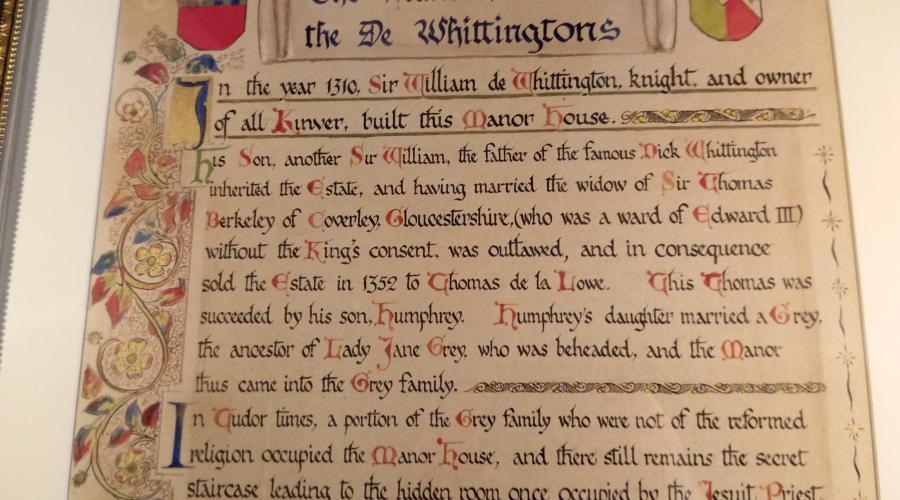 the De Whittingtons
In the year 1310, Sir William de Whittington, knight, and owner
of all Kinver, built this Manor House.
his Son, another Sir William, the father of the famous Dick Whittington
inherited the Estate, and having married the widow of Sir Thomas
Berkeley of Coverley, Gloucestershire, (who was a ward of Edward III)
without the King's consent, was outlawed, and in consequence
sold the Estate in 1352 to Thomas de la Lowe. This Thomas was
succeeded by his son, Humphrey. Humphrey's daughter married a Grey,
the ancestor of Lady Jane Grey, who was beheaded, and the Manor
thus came into the Grey family.
In Tudor times, a portion of the Grey family who were not of the reformed
religion occupied the Manor House, and there still remains the secret
staircase leading to the hidden room once occupied by the Jesuit Priest